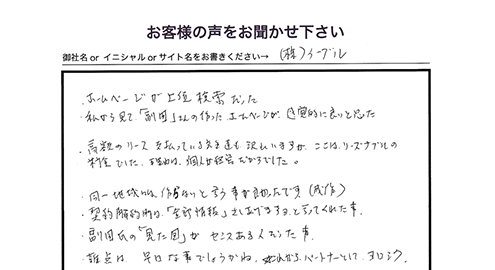 お客様の声をお聞かせ下さい
御社名 or イニシャル or サイト名をお書きください→ (株)イーブル
・ホームページが上位検索だった
・私から見て、「副田」さんの作ったホームページが、直覚的に良いと思った
・高額のリースを払っている先生達も沢山いますが、ここは、リーズナブルの
料金でした。理由は、個人経営だからでした。
・同一地域には、作らないと言う事が良かったです
・契約解約時は、「全部情報」さしあげますヨ、と言ってくれた事。
・副田氏の「見た目」が センスある人だった事
・難点は、早口な事でしょうかね。これからも、パートナーとして、ヨロシク